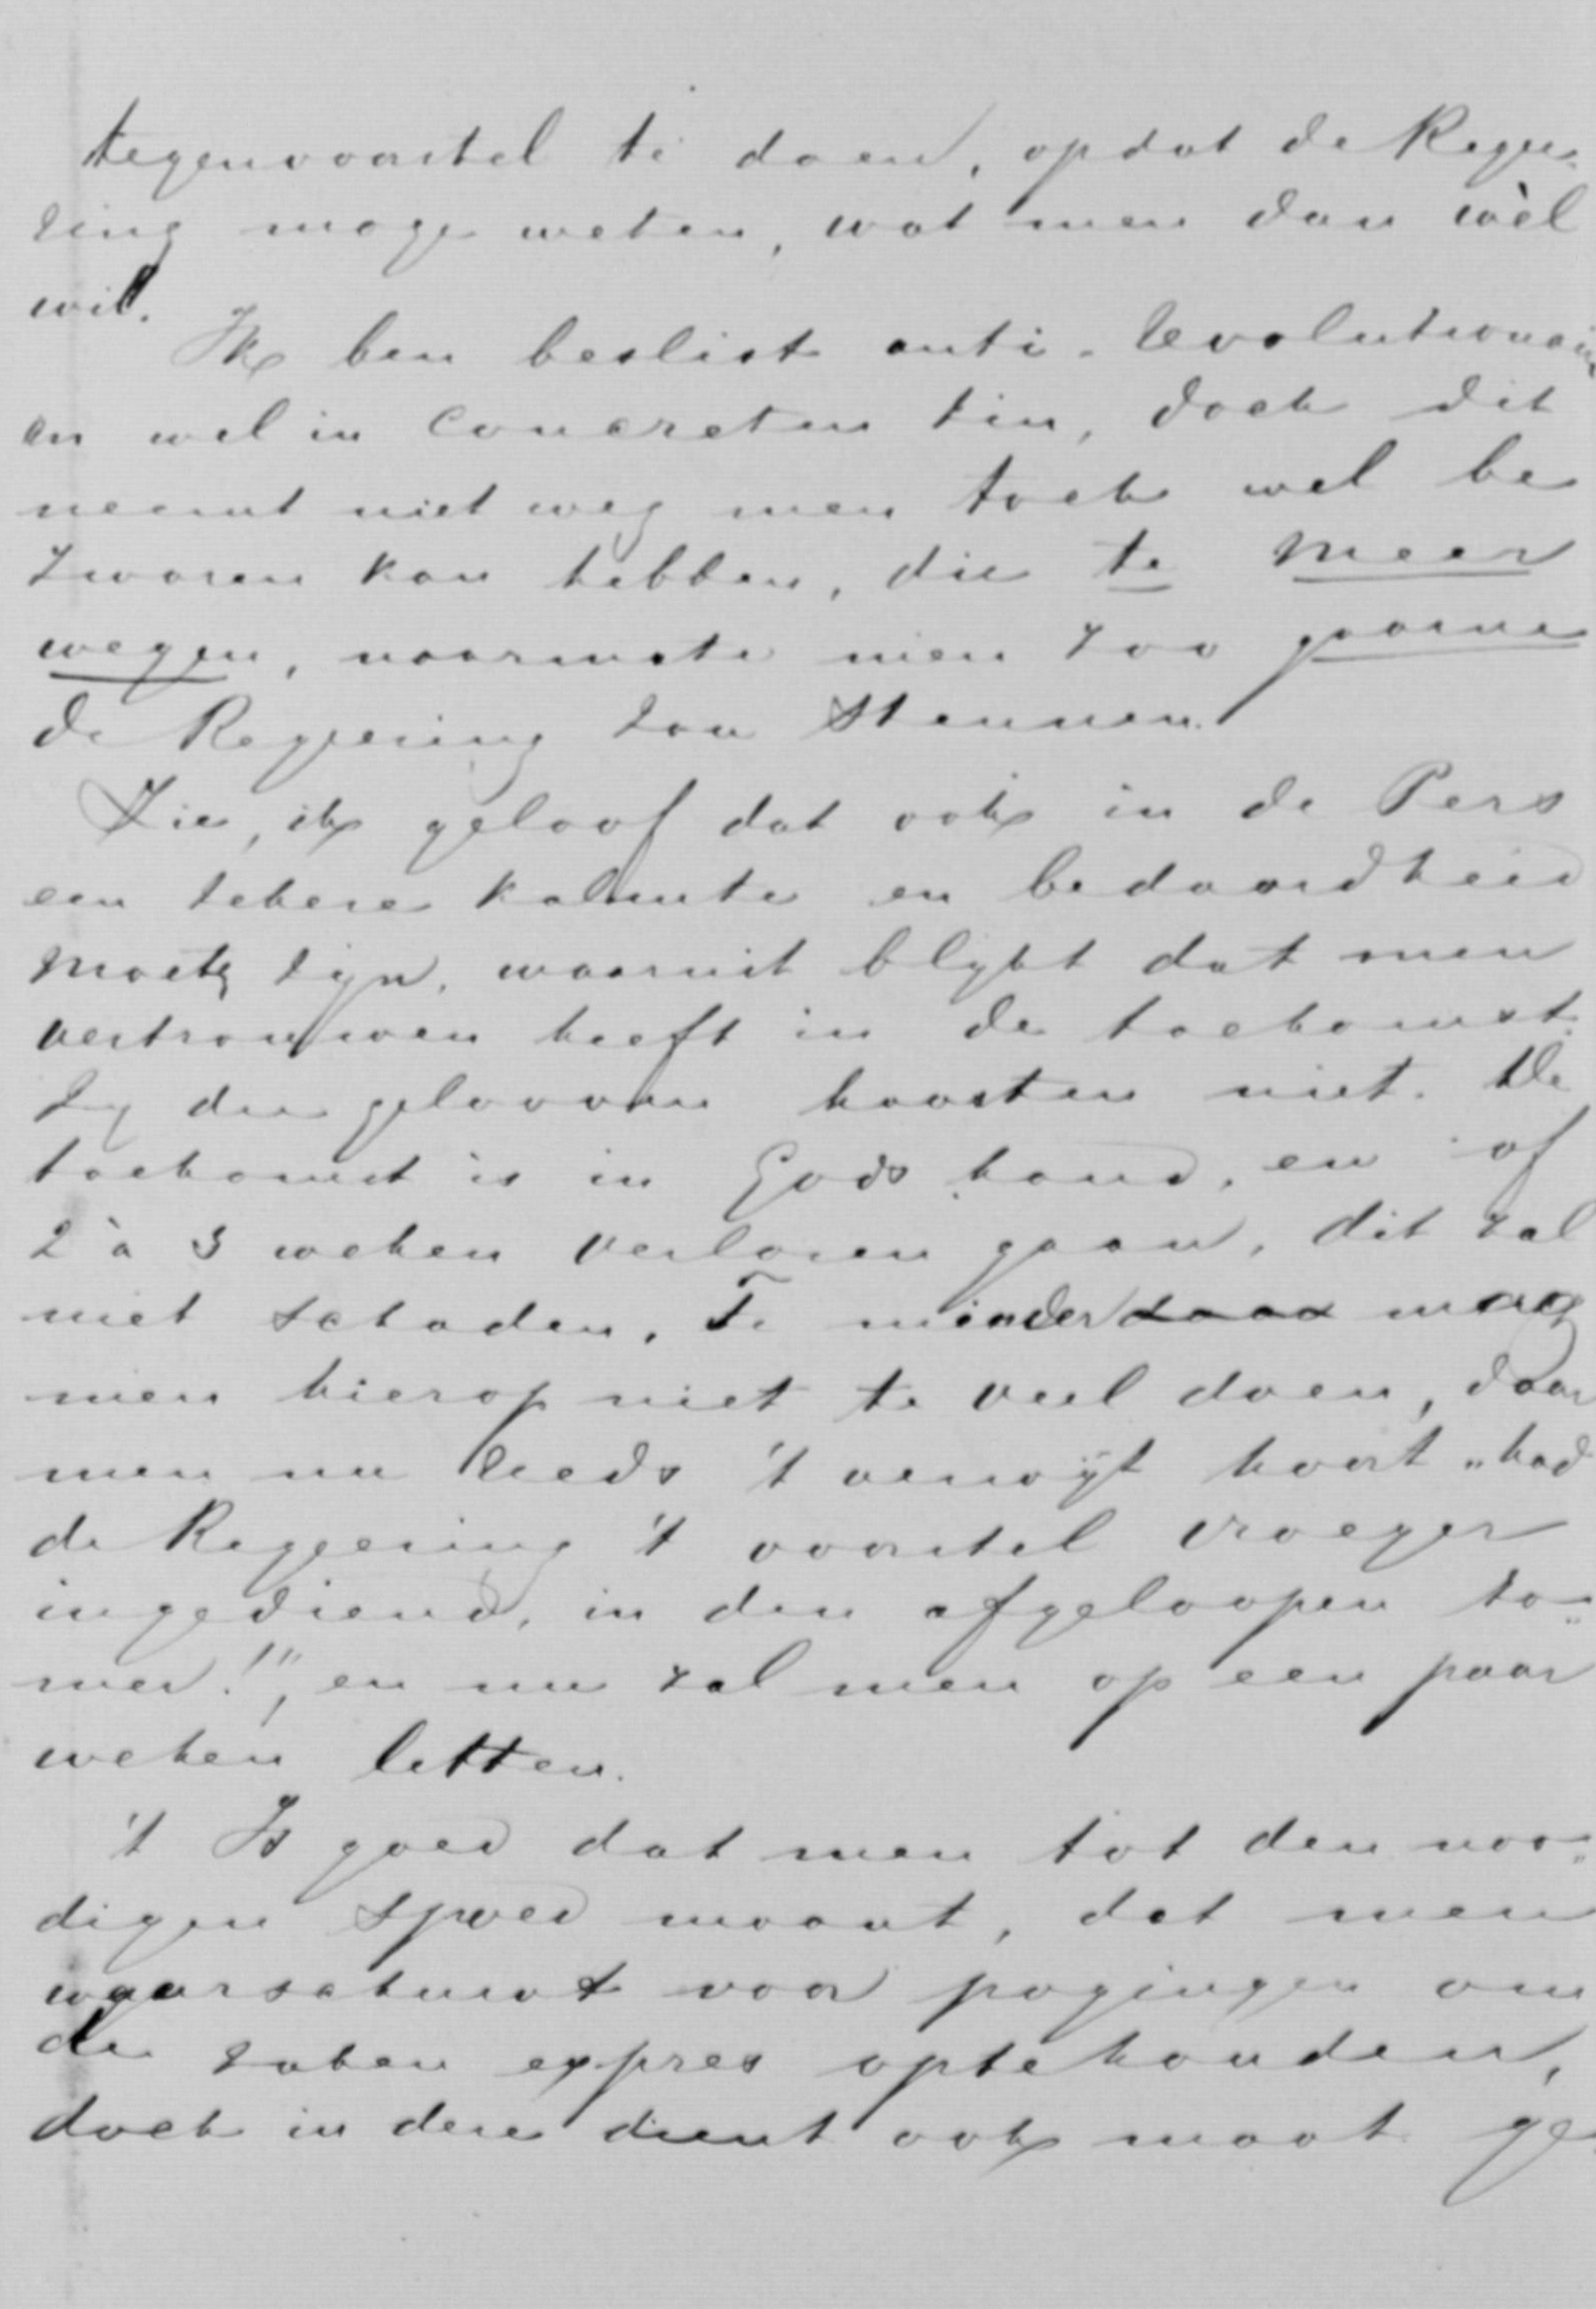 tegenvoorstel te doen, opdat de Regee-
ring moge weten, wat men dan wèl
wil.
Ik ben beslist anti-revolutionair
en wel in concreten zin, doch dit
neemt niet weg men toch wel be
zwaren kan hebben, die te meer
wegen, naarmate men zoo gaarne
de Regeering zou steunen.
Zie, ik geloof dat ook in de Pers
een zekere kalmte en bedaardheid
moet zijn, waaruit blijkt dat men
vertrouwen heeft in de toekomst.
Zij die gelooven haasten niet. De
toekomst is in Gods hand, en of
2 à 3 weken verloren gaan, dit zal
niet schaden. Te minder mag
men hierop niet te veel doen, daar
men nu reeds 't verwijt hoort „had
de Regeering 't voorstel vroeger
ingediend, in den afgeloopen zo-
mer!", en nu zal men op een paar
weken letten.
't Is goed dat men tot den noo-
digen spoed maant, dat men
waarschuwt voor pogingen om
de zaken expres optehouden,
doch in deze dient ook maat ge